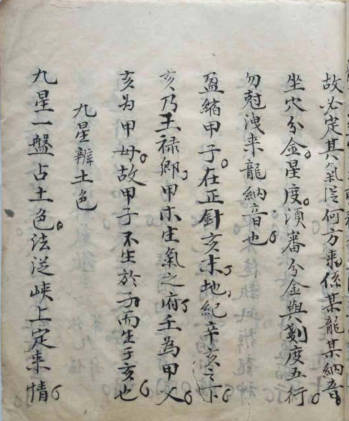 故必定其氣從何方來係某龍某納音
坐穴分金星度須審分金與刻度五行
勿尅洩來龍納音也
盈縮甲子在正針亥末地紀辛
亥乃壬祿鄉甲木生氣之府壬為甲父
亥為甲母故甲子不生於子而生于亥也
九星辨土色
九星一盤占土色法從峽上定來情